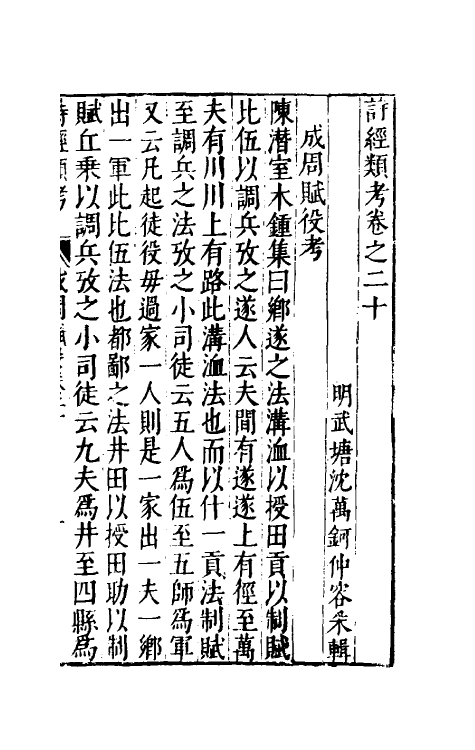 詩經類考卷之二十
明武塘沈萬鈳仲容采輯
成周賦役考
陳潛室木鍾集曰鄉遂之法溝洫以授田貢以制賦
比伍以調兵攷之遂人云夫間有遂遂上有徑至萬
夫有川川上有路此溝洫法也而以什一貢法制賦
至調兵之法攷之小司徒云五人爲伍至五師爲軍
又云凡起徒役毋過家一人則是一家出一夫一鄉
出一軍此比伍法也都鄙之法井田以授田助以制
賦丘乗以調兵攷之小司徒云九夫爲井至四縣爲
詩經類考